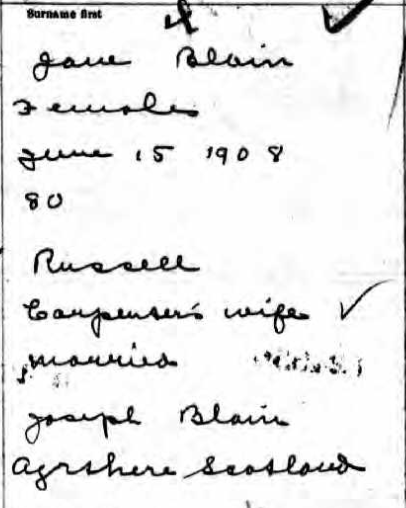 Surname first
Jane Blain
Female
June 15 1908
80
Russell
Carpenter's wife
married
Joseph Blain
Agrshere Scotland